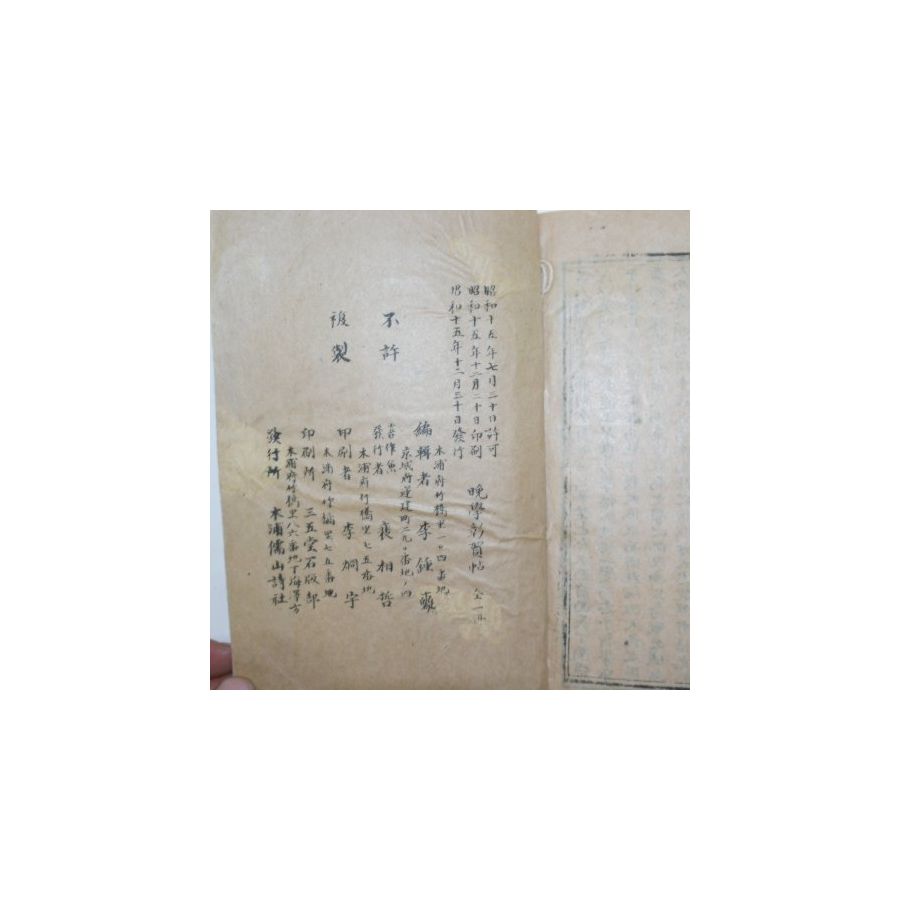 昭和十五年七月二十日許可
昭和十五年十二月二十日印刷
昭和十五年十二月三十日發行
晩學彰賀帖 全一冊
不許
複製
木浦府竹橋里一〇四番地
編輯者 李鍾
京城府蓮建町二九〇番地ノ四
著作兼
發行者 裵相哲
木浦府竹橋里七五番地
印刷者 李炯宇
木浦府竹橋里七五番地
印刷所 三五堂石版部
木浦府竹橋里八六番地丁海澤方
發行所 木浦儒山詩社